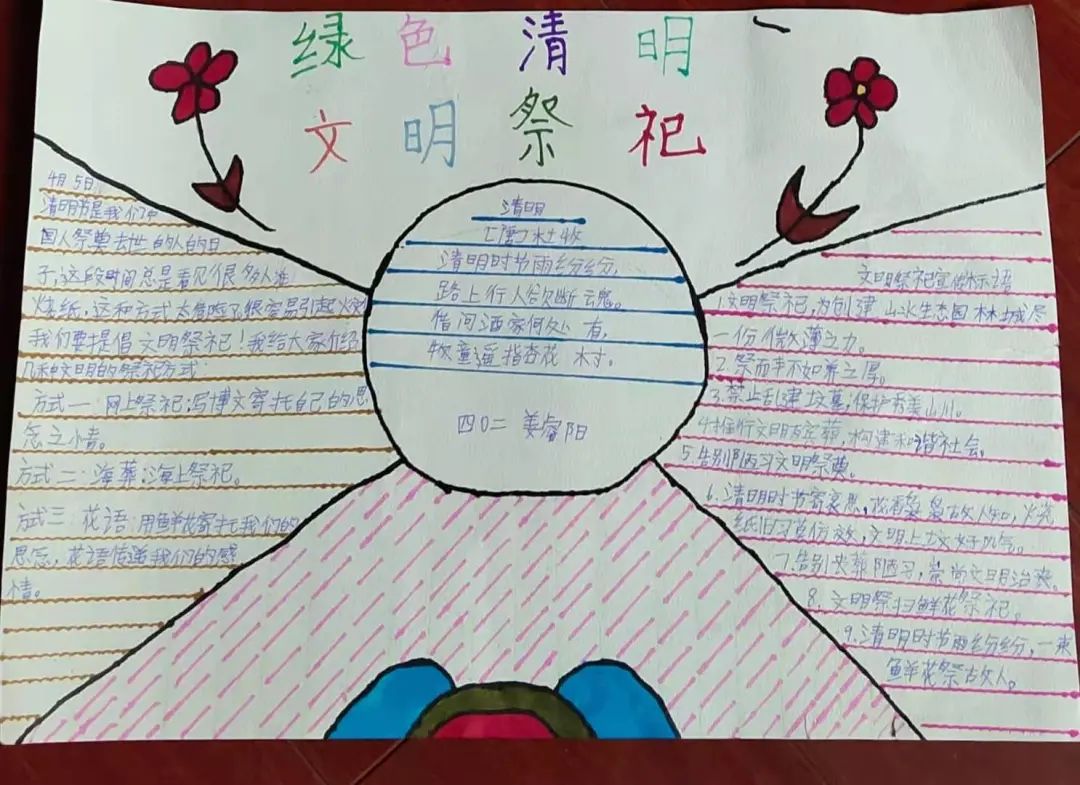 绿色清明
文明祭祀
4月5日,
清明节是我们中
国人祭奠去世的人的日
子,这段时间总是看见很多人准
烧纸,这种方式太危险了很容易引起火灾
我们要提倡文明祭祀!我给大家介绍
几种文明的祭祀方式:
方式一:网上祭祀:写博文寄托自己的思
念之情。
方式二:海葬:海上祭祀。
方式三:花语:用鲜花寄托我们的
思念,花语传递我们的感
情。
清明
[唐]杜牧
清明时节雨纷纷,
路上行人欲断云鬼。
借问酒家何处有,
牧童遥指杏花村。
四〇二 姜睿阳
文明祭祀宣传标语
1.文明祭祀,为创建山水生态园林城尽
一份微薄之力。
2.祭而丰不如养之厚。
3.禁止乱建坟墓;保护秀美山川。
4.推行文明丧葬,构建和谐社会。
5.告别陋习文明祭奠。
6.清明时节寄哀思,故人知,火烧
纸旧习莫仿效,文明上坟好风气。
7.告别丧葬陋习,崇尚文明治丧。
8.文明祭扫鲜花祭祀。
9.清明时节雨纷纷,一束
鲜花祭故人。